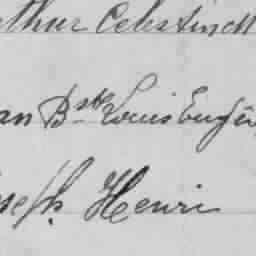 thur Celestin
an Bste Louis Eugèn
seph Henri